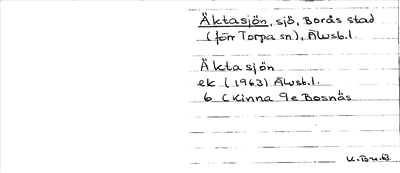 Äktasjön, sjö, Borås stad
(förr Torpa sn), Älvsb.l.
Äktasjön
ek (1963) Älvsb.l.
6 C Kinna 9e Bosnäs